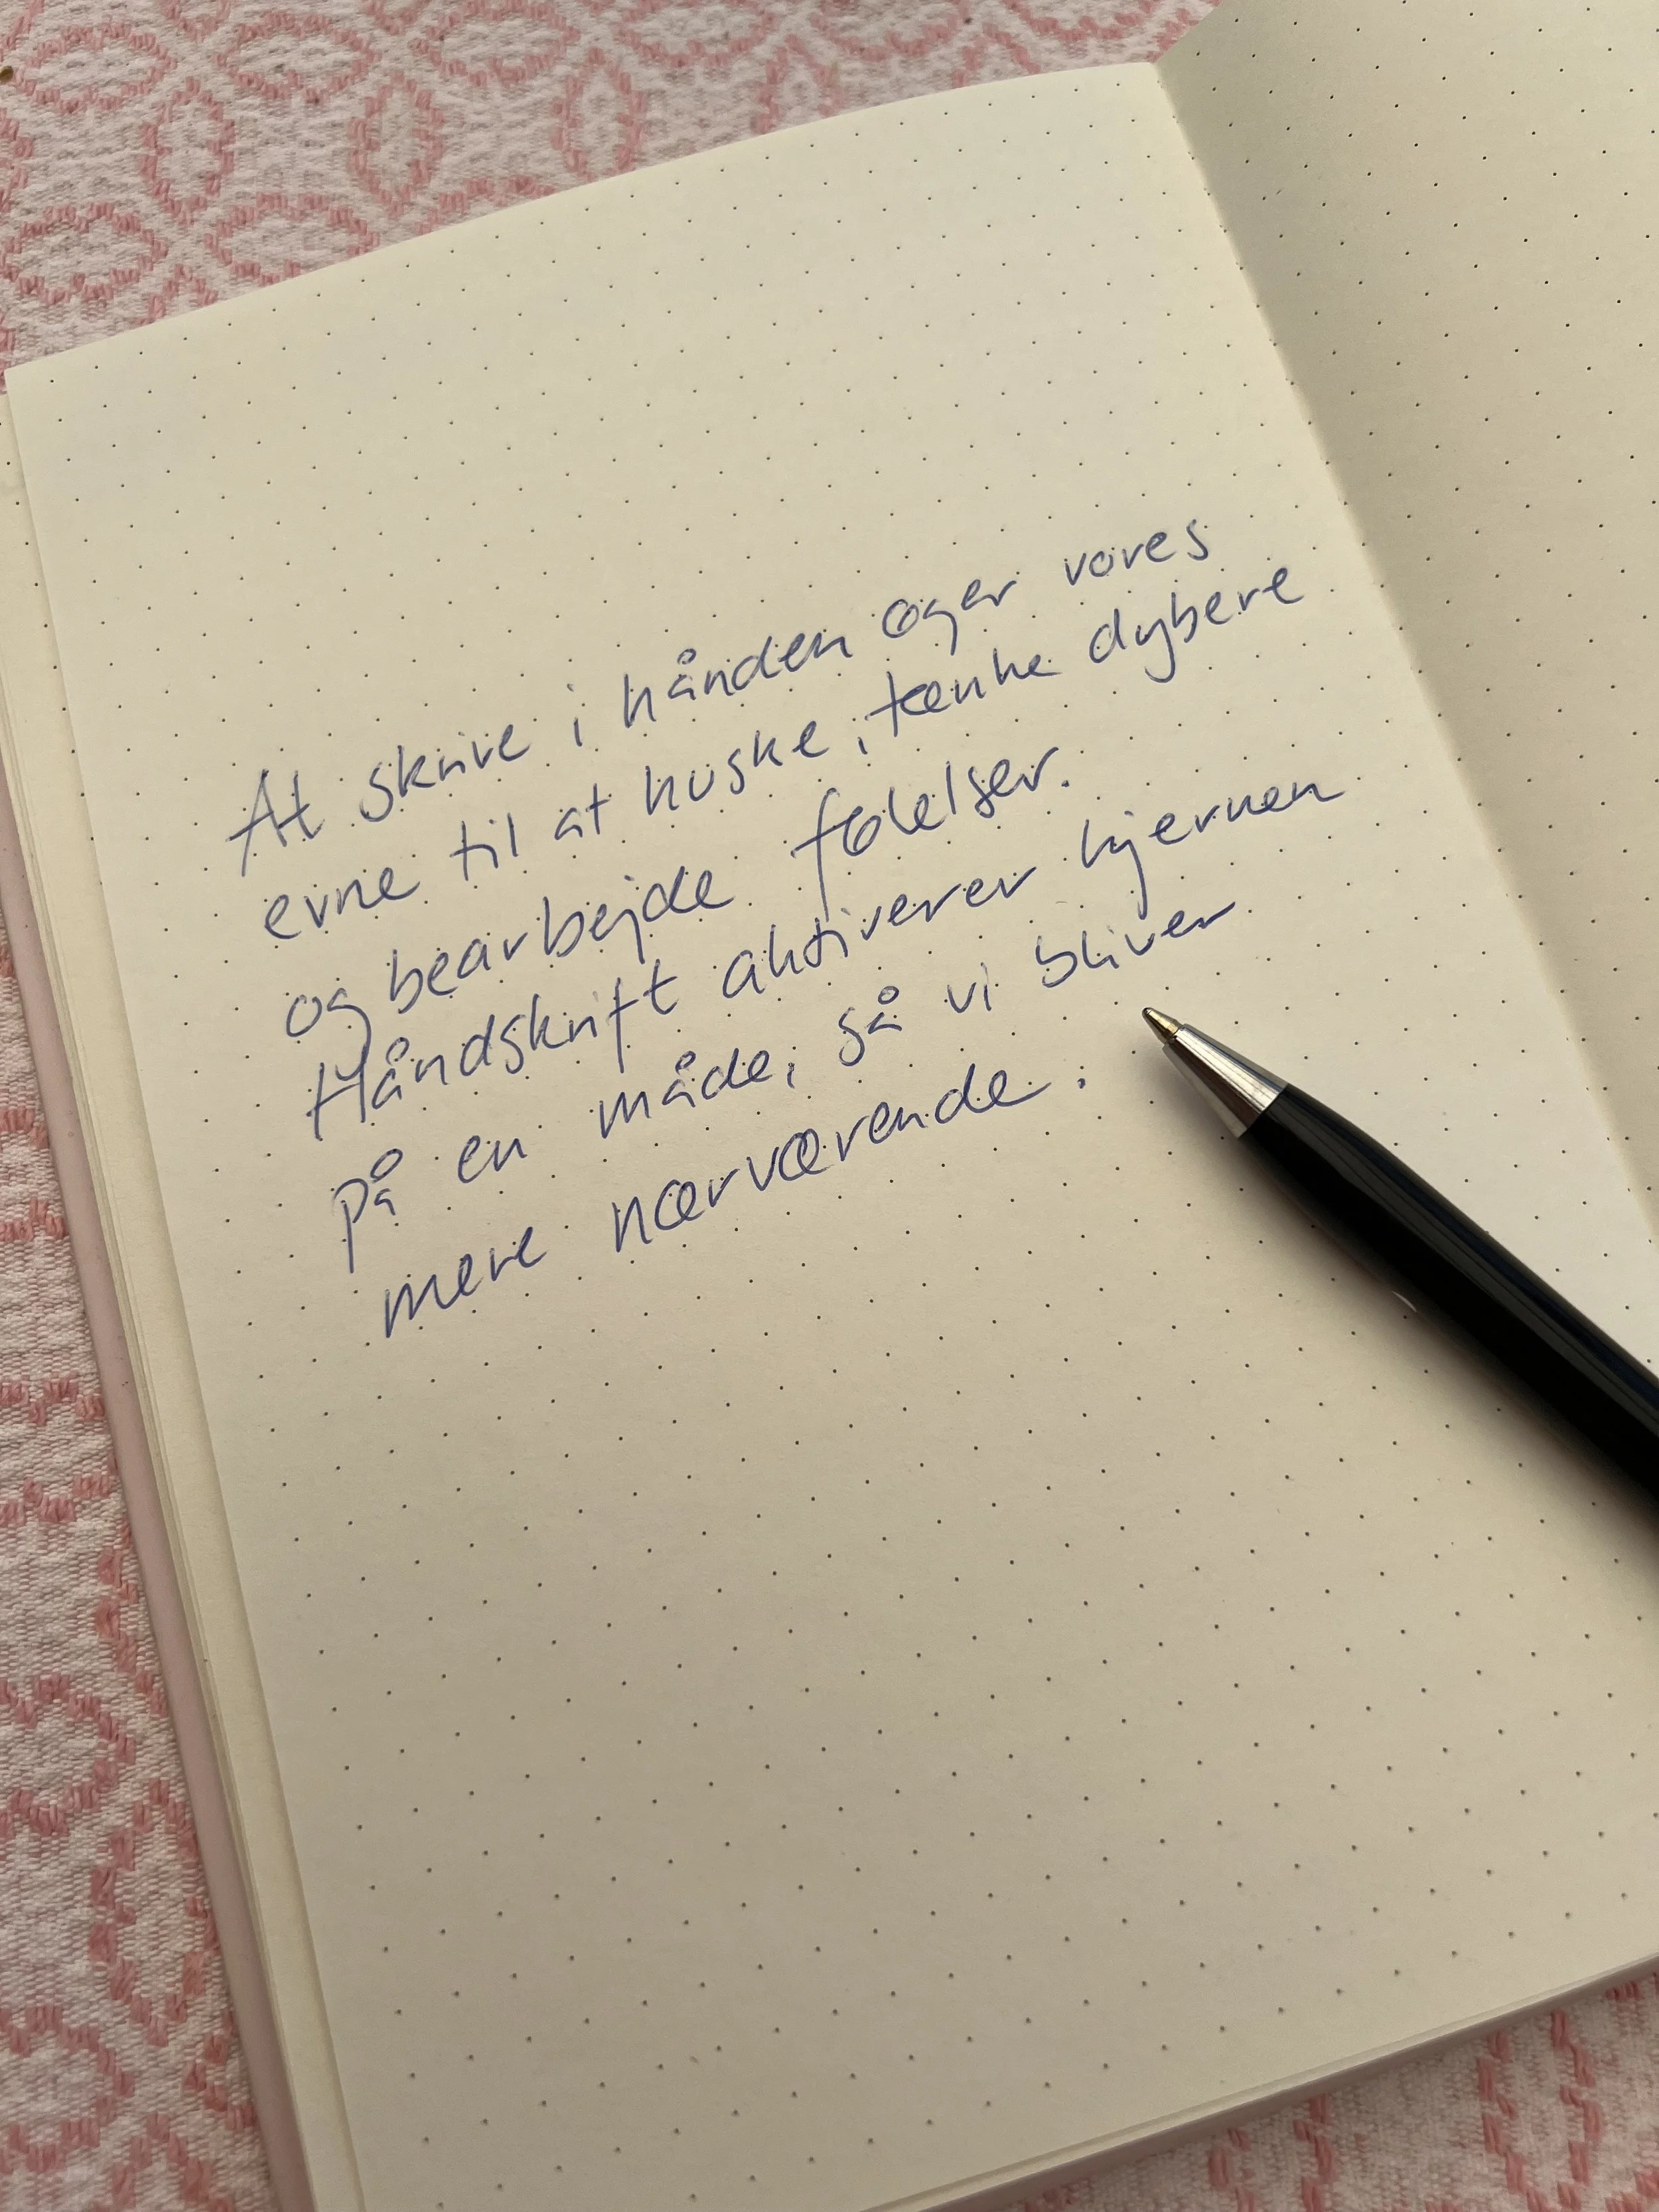 At skrive i hånden øger vores
evne til at huske, tænke dybere
og bearbejde følelser.
Håndskrift aktiverer hjernen
på en måde, så vi bliver
mere nærværende.